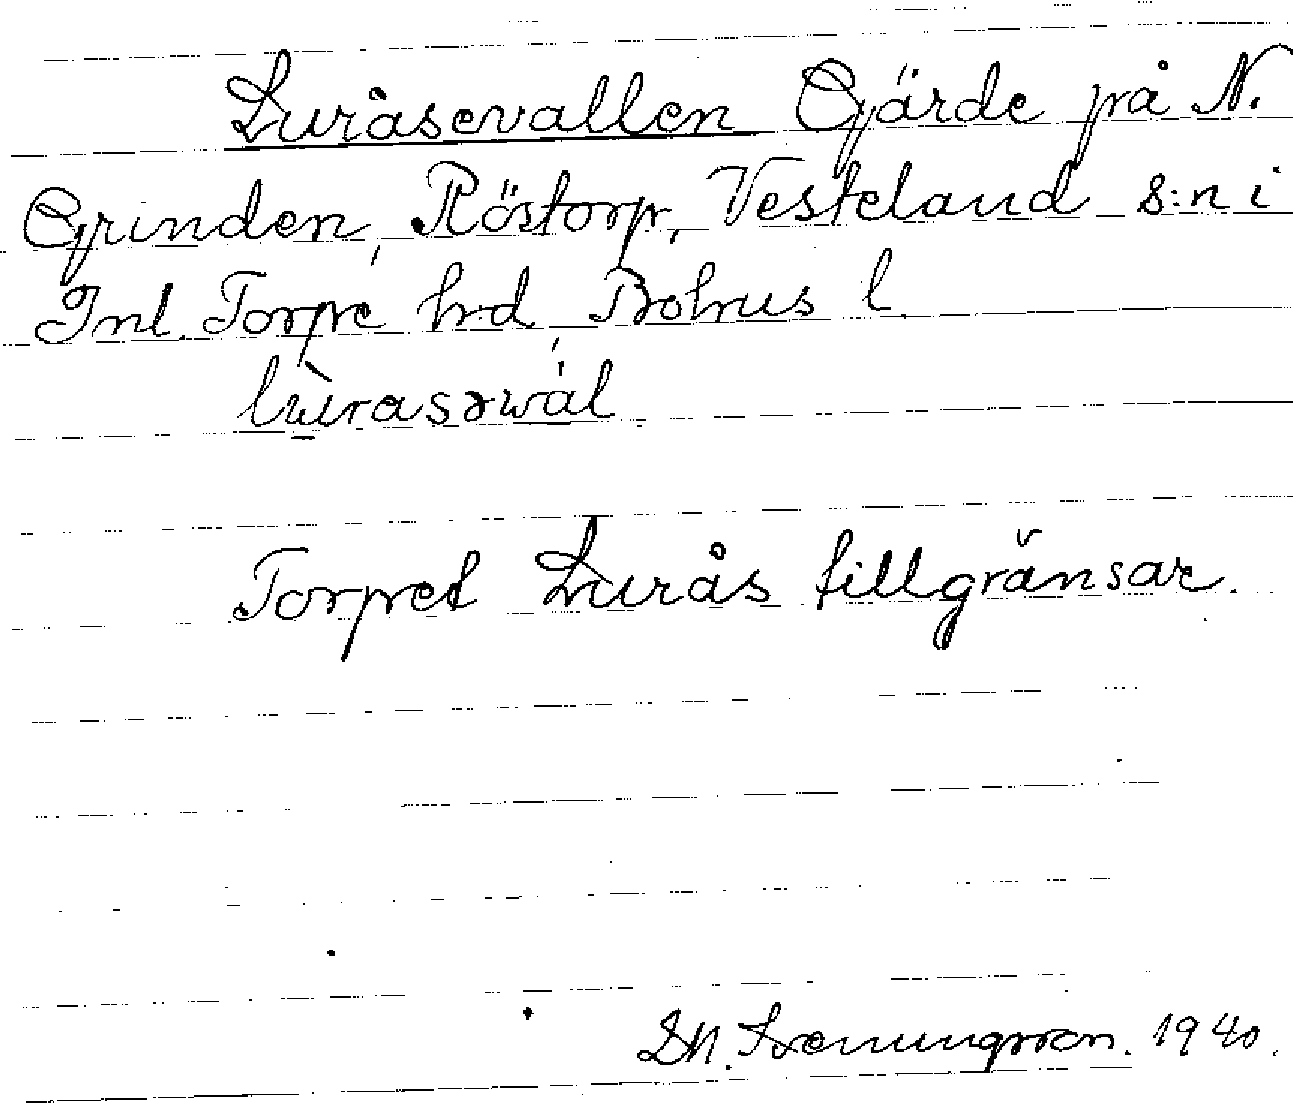 Luråsevallen Gjärde på N.
Grinden, Röstorp, Vesteland s:n i
Inl. Torpe hrd, Bohus l.
lùrasəwál
Torpet Lurås tillgränsar.
1940.